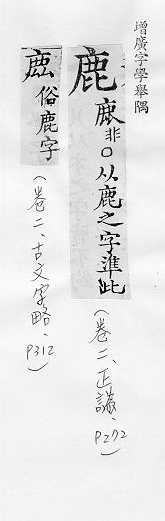 增廣字學舉隅
鹿 𢉖非○从鹿之字準此
(卷二、正譌、P272)
俗鹿字
(卷二、古文字略、P312)